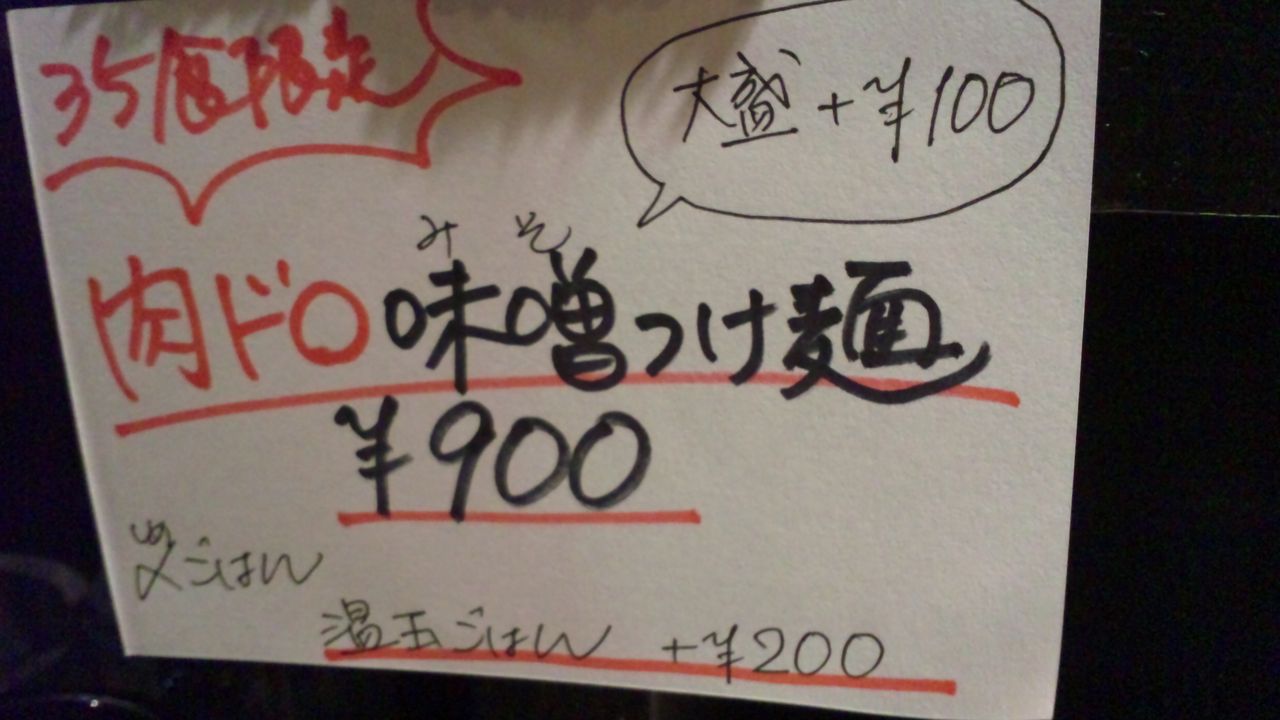 35食限定
大盛+¥100
みそ
肉ドロ味噌つけ麺
¥900
しめ
〆ごはん
温玉ごはん +¥200